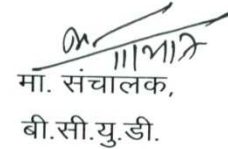 मा. संचालक,
बी.सी.यु.डी.